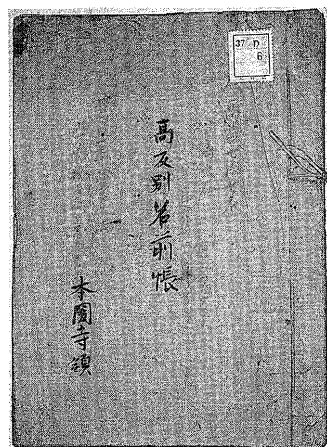 37 D
6
高反別名前帳
本圀寺領